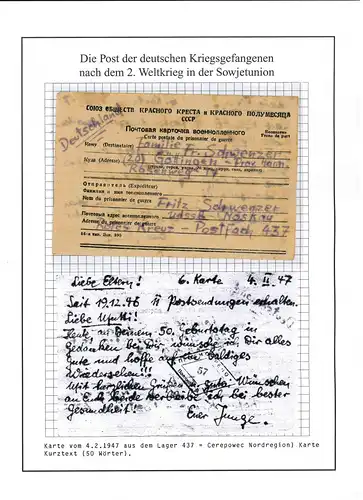 Die Post der deutschen Kriegsgefangenen
nach dem 2. Weltkrieg in der Sowjetunion
СОЮЗ ОБЩЕСТВ КРАСНОГО КРЕСТА и КРАСНОГО ПОЛУМЕСЯЦА
СССР
Deutschland
Почтовая карточка военнопленного
Carte postale du prisonnier de guerre
Бесплатно
Franc de port
Кому (Destinataire) Familie
Fritz Schweenzer
Куда (Adresse) (20) Göttingen - Prov. Hann.
Rosenweg
Отправитель (Expéditeur)
Фамилия и имя военнопленного
Nom du prisonnier de guerre Fritz Schweenzer
Почтовый адрес военнопленного
Adresse du prisonnier de guerre UdSSR Moskau
Rotes Kreuz - Postfach 437
Liebe Eltern! 6. Karte 4. II. 47
Seit 19.12.46 11 Postsendungen erhalten.
Liebe Mutti!
Heute an Deinem 50. Geburtstag in
Gedanken bei Dir wünsche ich Dir alles
Gute und hoffe auf ein baldiges
Wiedersehen!!!
Mit herzlichen Grüßen u. guten Wünschen
an Euch beide verbleibe ich bei bester
Gesundheit! Euer Junge.
Karte vom 4.2.1947 aus dem Lager 437 = Cerepowec Nordregion) Karte
Kurztext (50 Wörter).